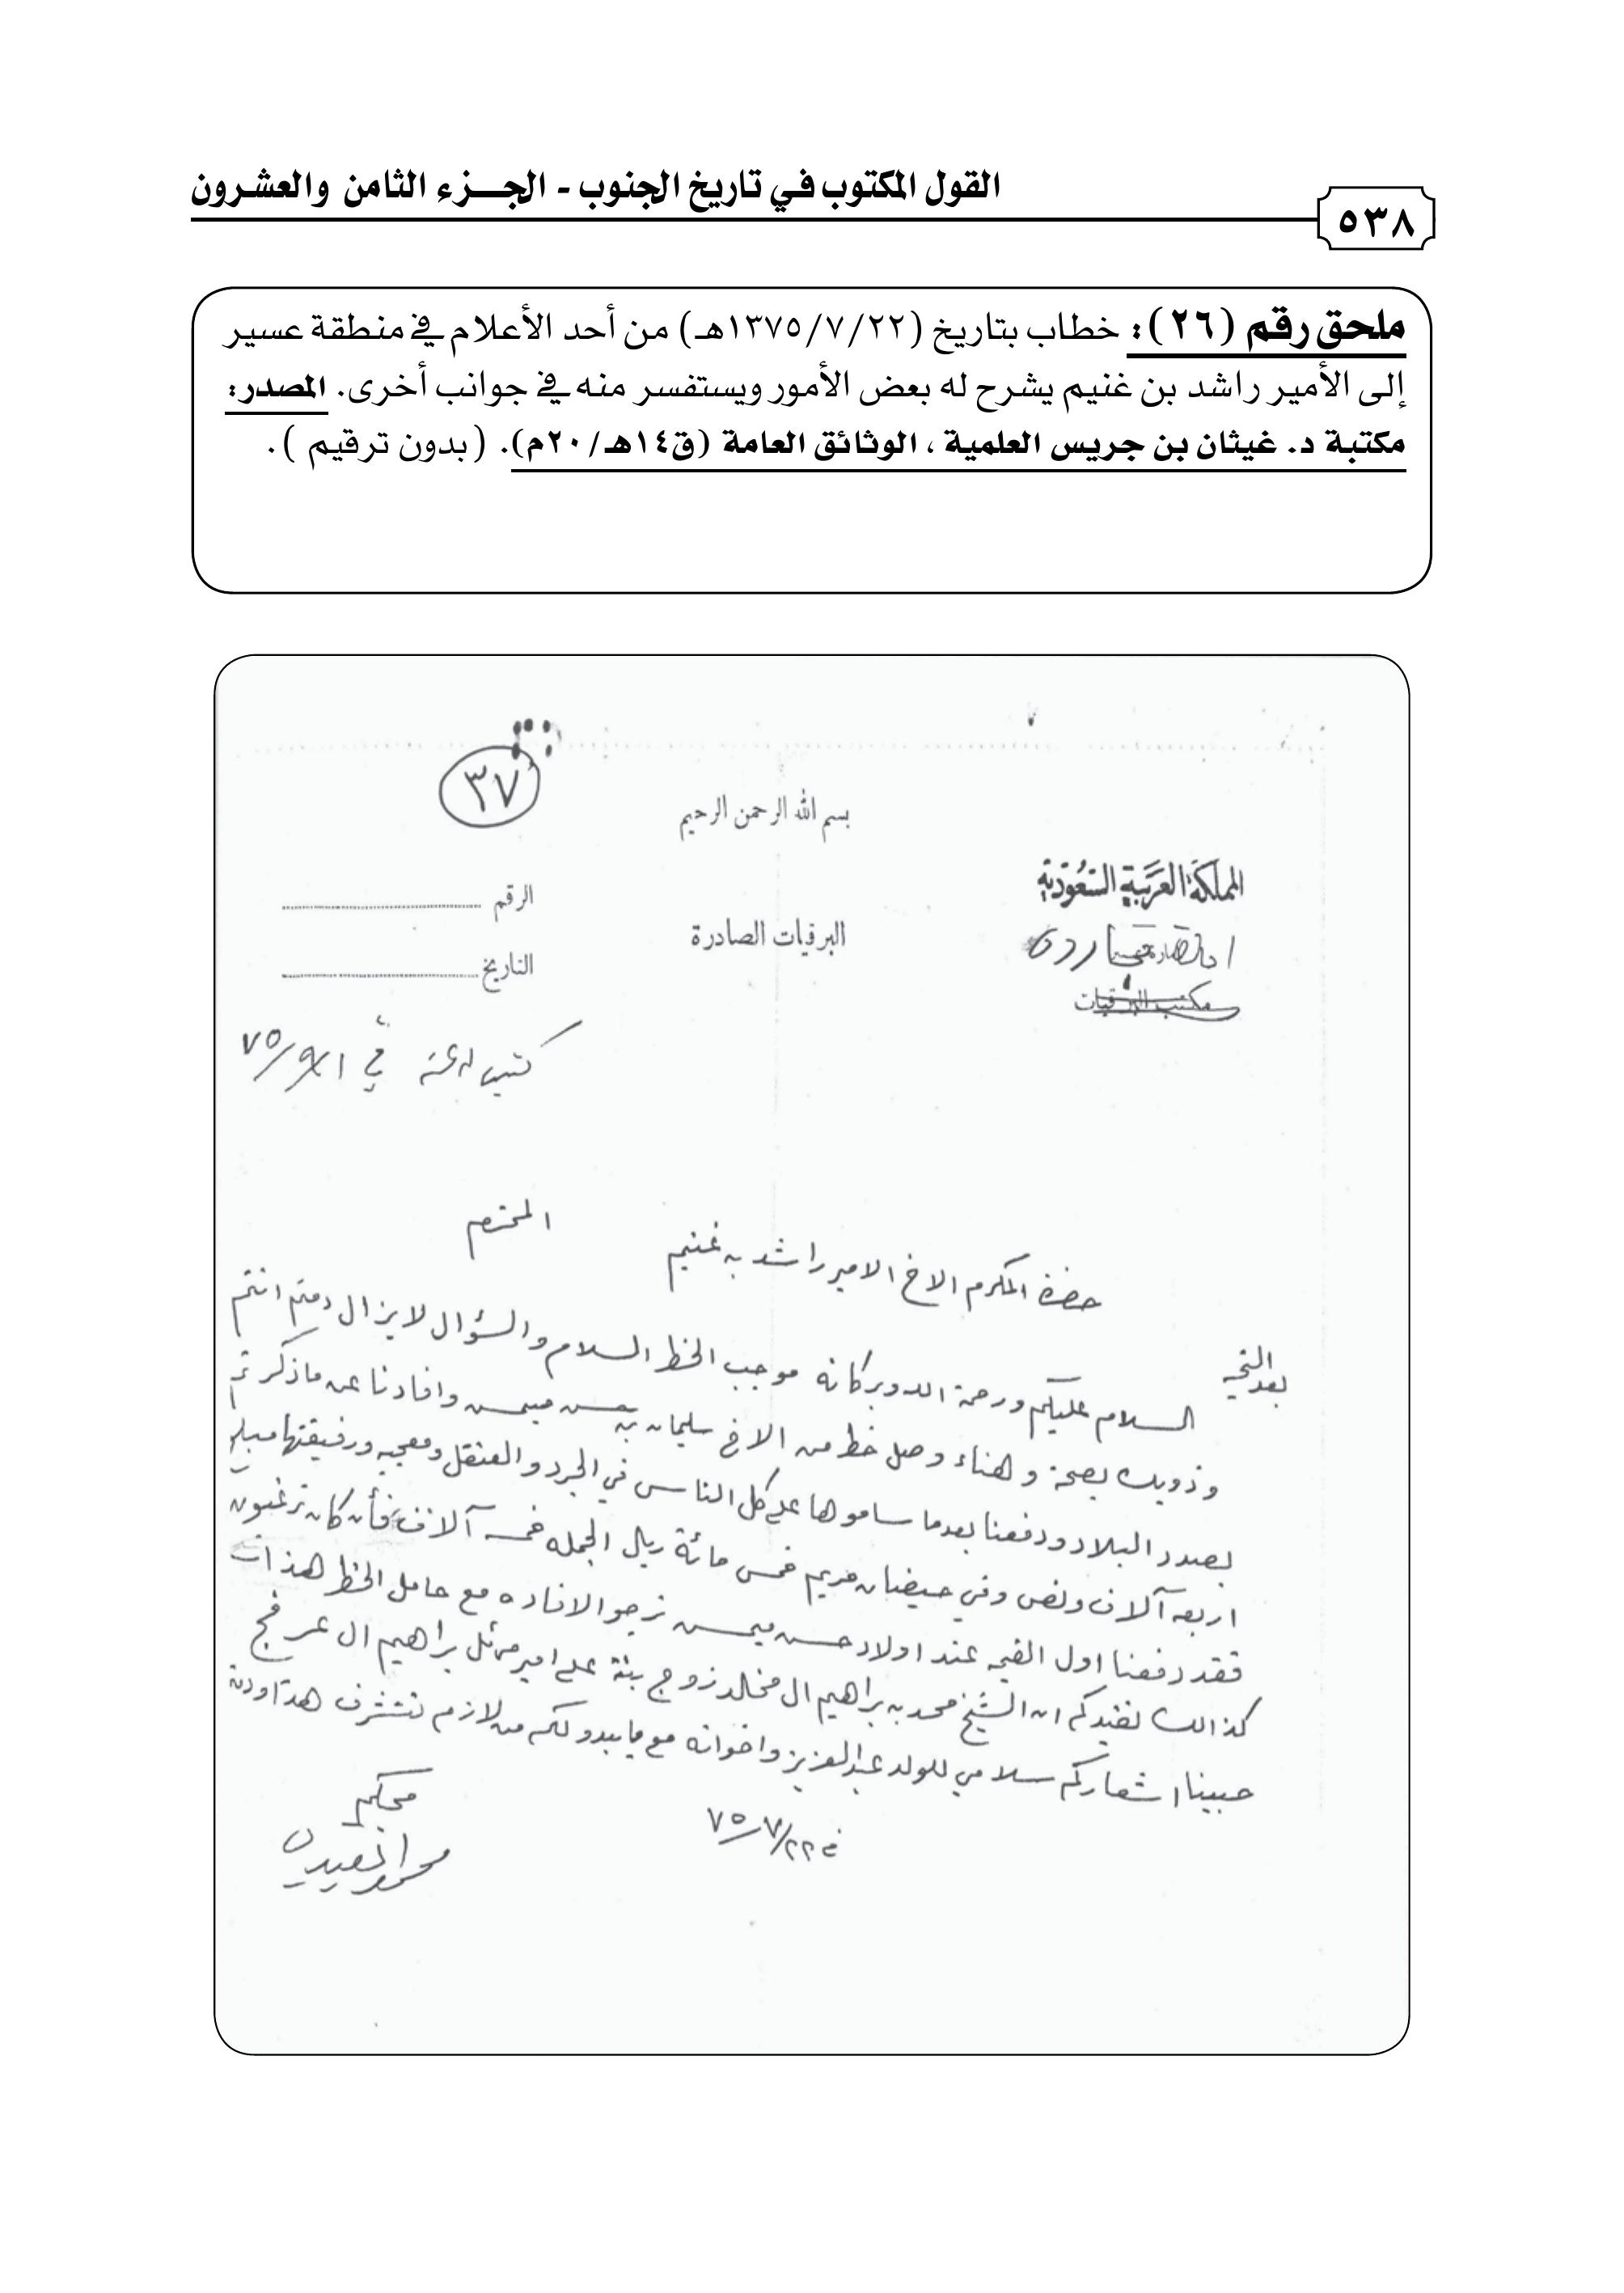 القول المكتوب في تاريخ الجنوب - الجـــزء الثامن والعشرون
٥٣٨
ملحق رقم (٢٦): خطاب بتاريخ (١٣٧٥/٧/٢٢هـ) من أحد الأعلام في منطقة عسير
إلى الأمير راشد بن غنيم يشرح له بعض الأمور ويستفسر منه في جوانب أخرى. المصدر:
مكتبة د. غيثان بن جريس العلمية ، الوثائق العامة (ق١٤هـ/٢٠م). (بدون ترقيم ).
٣٧
بسم الله الرحمن الرحيم
المملكة العربية السعودية
البرقيات الصادرة
مكتب البرقيات
الرقم
التاريخ
في ٧٥/٩/١
حضرة المكرم الاخ الامير راشد بن غنيم المحترم
بعد التحيه
السلام عليكم ورحمة الله وبركاته موجب الخط السلام والسؤال لايزال دمتم انتم
وذويك بصحة وهناء وصل خط من الاخ سليمان بن حسن ميمسن وافادنا عن ماذكرتم
بصدد البلاد ودفعنا بعدما ساموها على كل الناس في الجرد والعنقل ومعجبه ورفيقتها مبلغ
اربعه آلاف ونص وفي حيضان مريم خمس مائة ريال الجمله خمسه آلاف فأن كان ترغبون
فقد دفعنا اول القيمه عند اولاد حسن ميمسن نرجو الافاده مع حامل الخط هذا
كذالك نفيدكم ان الشيخ محمد بن براهيم ال مخالد زوج بنته على امير براهيم ال عمر
حبينا اشعاركم سلامي للولد عبدالعزيز واخوانه مع مايبدو لكم من لازم نتشرف هذا ودمتم
في ٧٥/٧/٢٢
محبكم